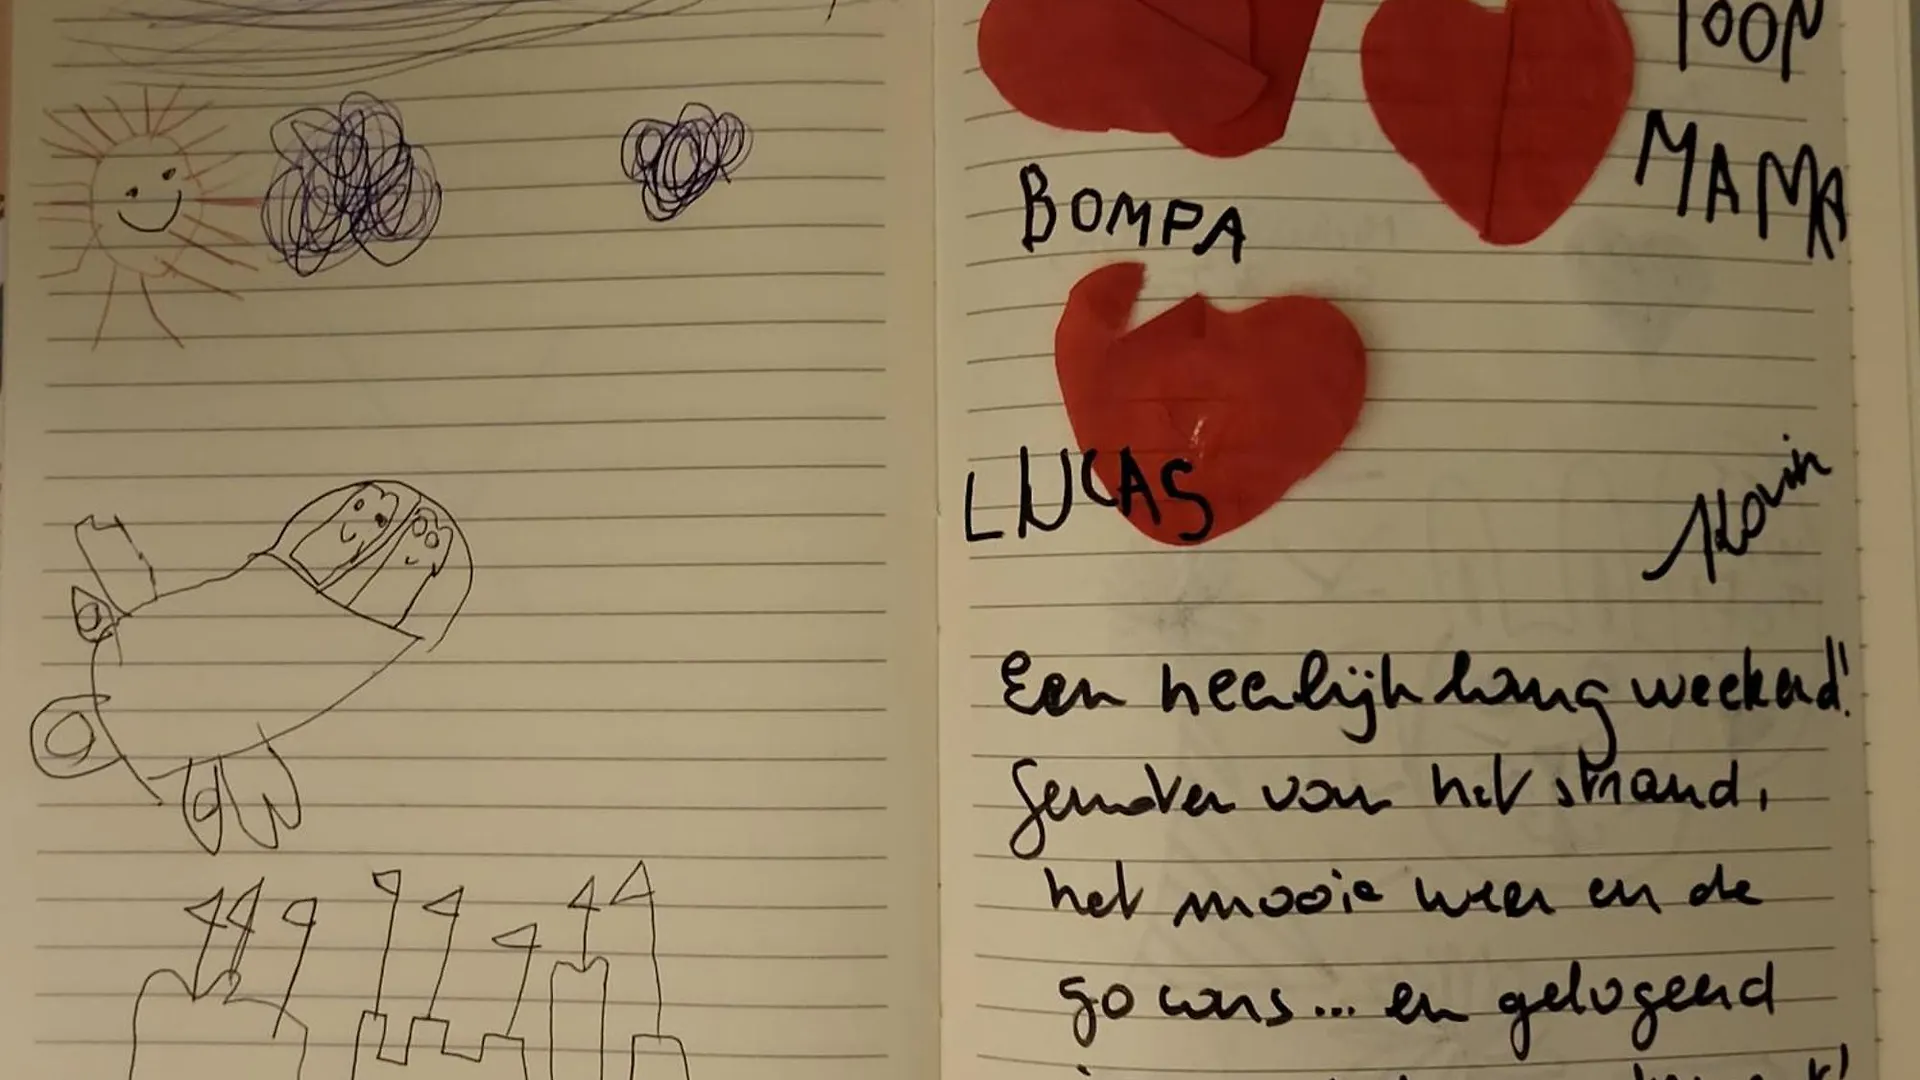 TOON
MAMA
BOMPA
LUCAS
Een heerlijk lang weekend!
Genoten van het strand,
het mooie weer en de
go cars... en gelogeerd